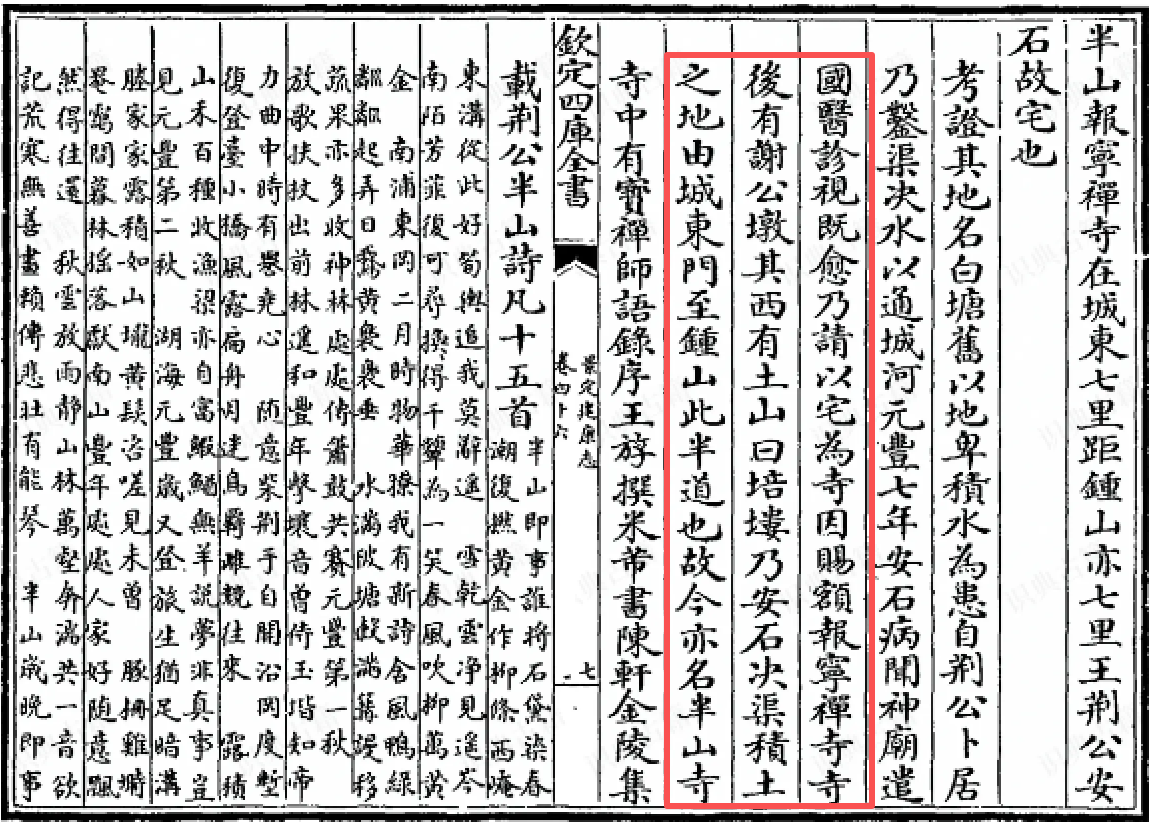 半山報寧禪寺在城東七里距鍾山亦七里王荆公安
石故宅也
考證其地名白塘舊以地卑積水為患自荆公卜居
乃鑿渠决水以通城河元豐七年安石病聞神廟遣
國醫診視既愈乃請以宅為寺因賜額報寧禪寺寺
後有謝公墩其西有土山曰培塿乃安石决渠積土
之地由城東門至鍾山此半道也故今亦名半山寺
寺中有寳禪師語錄序王斿撰米芾書陳軒金陵集
欽定四庫全書
景定建康志
卷四十六
七
載荆公半山詩凡十五首
半山即事誰將石黛染春
潮復撚黄金作栁條西崦
東溝從此好筍輿追我莫辭遥 雪乾雲净見遥岑
南陌芳菲復可尋換得千顰為一笑春風吹栁萬黄
金 南浦東岡二月時物華撩我有新詩含風鴨綠
粼粼起弄日鵞黄裊裊垂 水滿陂塘榖滿篝謾移
蔬果亦多收神林處處傳簫鼓共賽元豐第一秋
放歌扶杖出前林遥和豐年擊壤音曾侍玉堦知帝
力曲中時有譽堯心 随意柴荆手自開沿岡度塹
復登臺小橋風露扁舟月迷鳥羇雌競往來 露積
山禾百種收漁梁亦自富鰕鰌無羊說夢非真事豈
見元豐第二秋 湖海元豐歳又登旅生猶足暗溝
塍家家露積如山壠黄髮咨嗟見未曾 豚柵雞塒
晻靄間暮林摇落獻南山豐年處處人家好随意飄
然得往還 秋雲放雨静山林萬壑奔湍共一音欲
記荒寒無善畫頼傳悲壮有能琴 半山歳晚即事